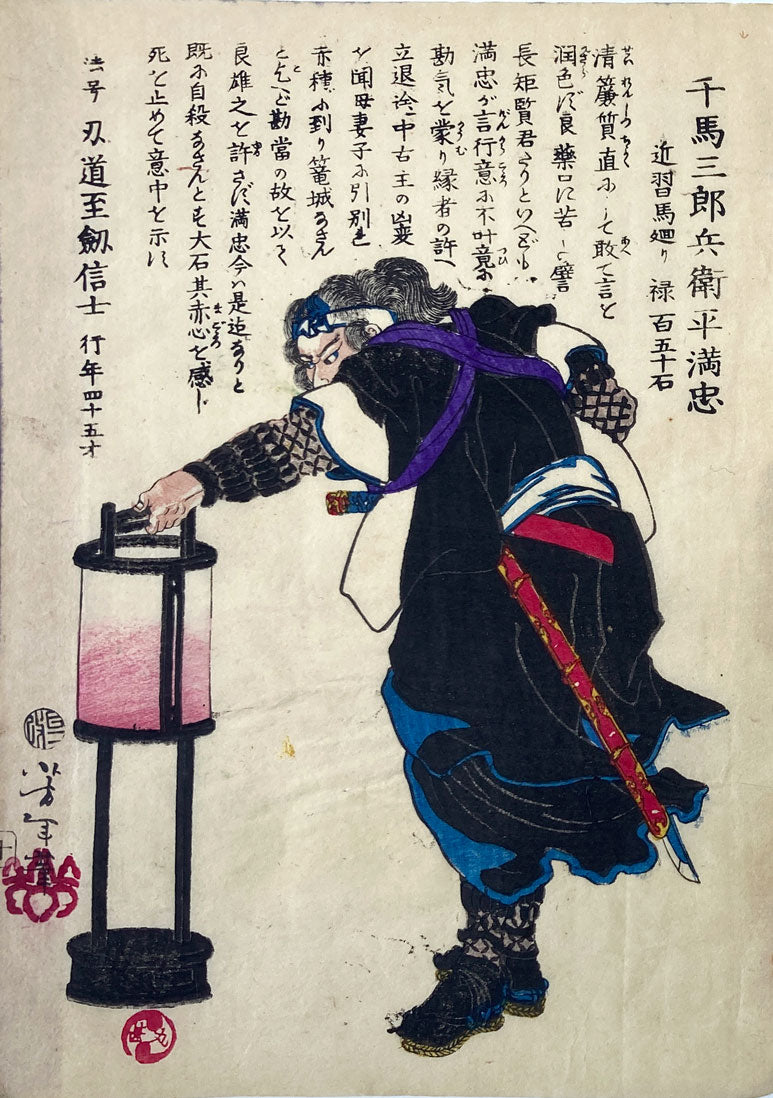 千馬三郎兵衛平満忠
近習馬廻り 禄 百五十石
清簾質直にして敢て言を
潤色ず良薬口に苦しと譬
長矩賢君なりといへども
満忠が言行意に不叶竟に
勘気を蒙り縁者の許へ
立退途中古主の凶変
を聞母妻子に引別れ
赤穂に到り篭城なさん
とすれど勘當の故を以て
良雄之を許さず満忠今は是迄なりと
既に自殺なさんとす大石其赤心を感じ
死を止めて意中を示す
法号 刃道至劔信士 行年四十五才
芳年筆